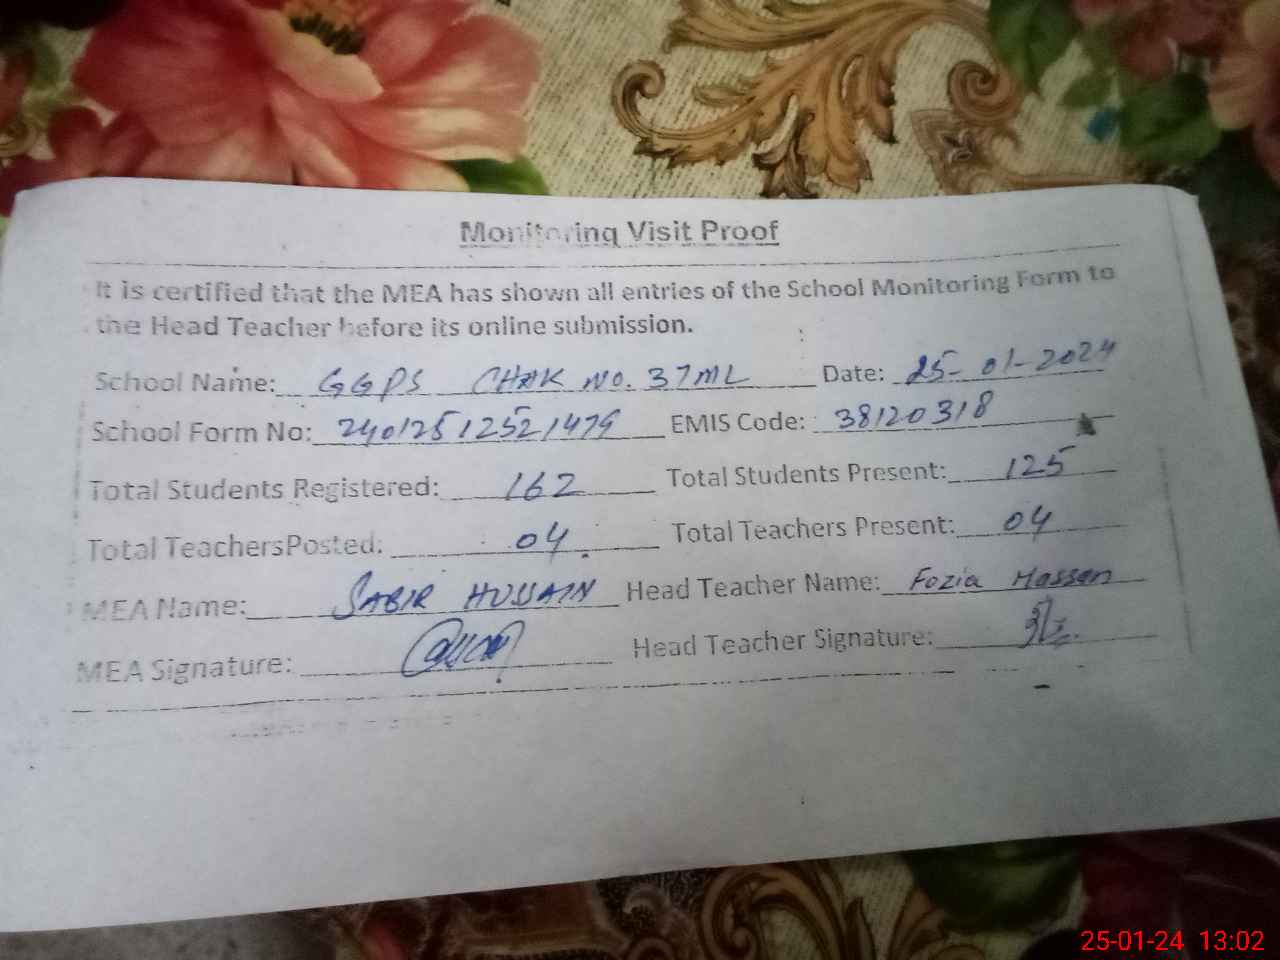 Monitoring Visit Proof
It is certified that the MEA has shown all entries of the School Monitoring Form to
the Head Teacher before its online submission.
School Name: GGPS CHAK NO. 37ML Date: 25-01-2024
School Form No: 24012512521479 EMIS Code: 38120318
Total Students Registered: 162 Total Students Present: 125
Total TeachersPosted: 04 Total Teachers Present: 04
MEA Name: SABIR HUSSAIN Head Teacher Name: Fozia Hassan
MEA Signature: Head Teacher Signature:
25-01-24 13:02